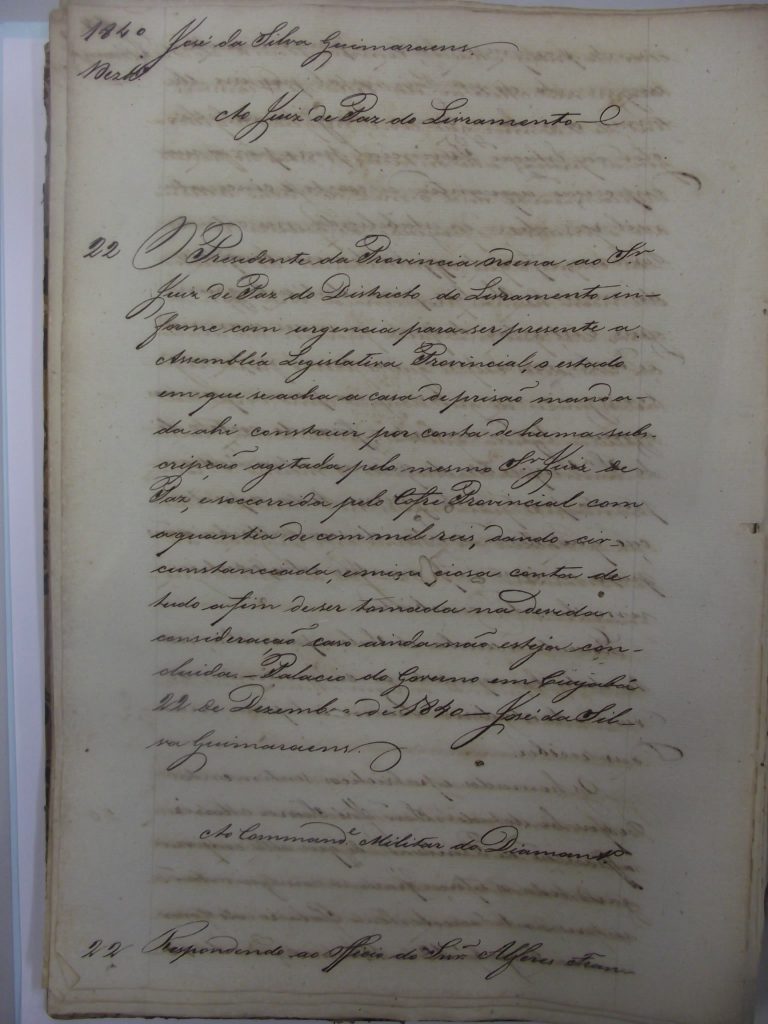 1840 José da Silva Guimaraens.
Dezbr.
Ao Juiz de Paz do Livramento
22 O Presidente da Provincia ordena ao Sr
Juiz de Paz do Districto do Livramento in-
forme com urgencia para ser presente a
Assembléa Legislativa Provincial, o estado
em que se acha a casa de prisão manda-
da ahi construir por conta de huma subs-
cripção agitada pelo mesmo Sr Juiz de
Paz, e soccorrida pelo Cofre Provincial com
a quantia de cem mil reis, dando cir-
cunstanciada, e minuciosa conta de
tudo a fim de ser tomada na devida
consideração caso ainda não esteja con-
cluida. - Palacio do Governo em Cuyabá
22 de Dezembro de 1840 - José da Sil-
va Guimaraens.
Ao Commande Militar do Diamantº
22 Respondendo ao Officio do Snr Alferes Fran-